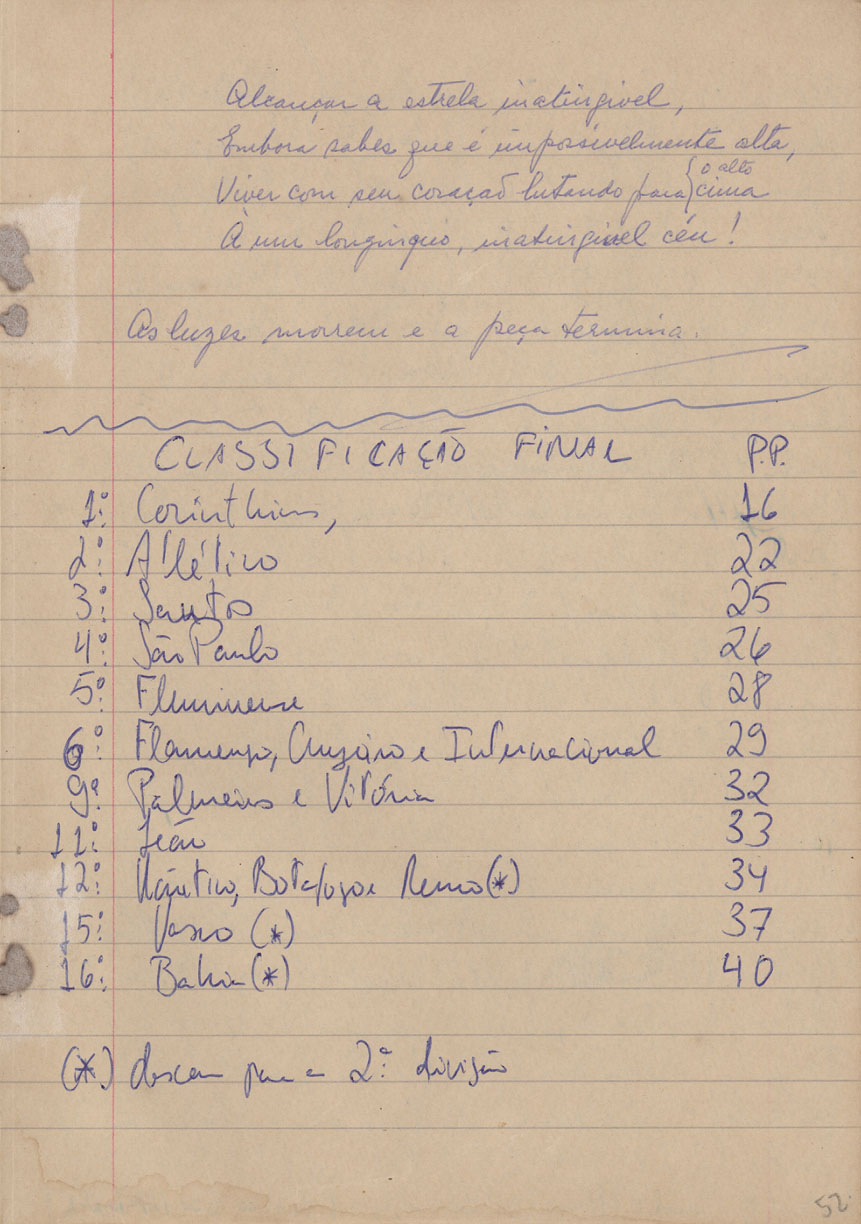 Alcançar a estrela inatingivel,
Embora sabes que é impossivelmente alta,
Viver com seu coração lutando para { o alto
cima
À um longinquo, inatingivel céu!
As luzes morrem e a peça termina.
CLASSIFICAÇÃO FINAL P.P.
1º: Corinthians, 16
2º: Atlético 22
3º: Santos 25
4º: São Paulo 26
5º: Fluminense 28
6º: Flamengo, Cruzeiro e Internacional 29
9ª: Palmeiras e Vitória 32
11º: Leão 33
12º: Náutico, Botafogo e Remo (*) 34
15º: Vasco (*) 37
16º: Bahia (*) 40
(*) descem para a 2ª: divisão
52